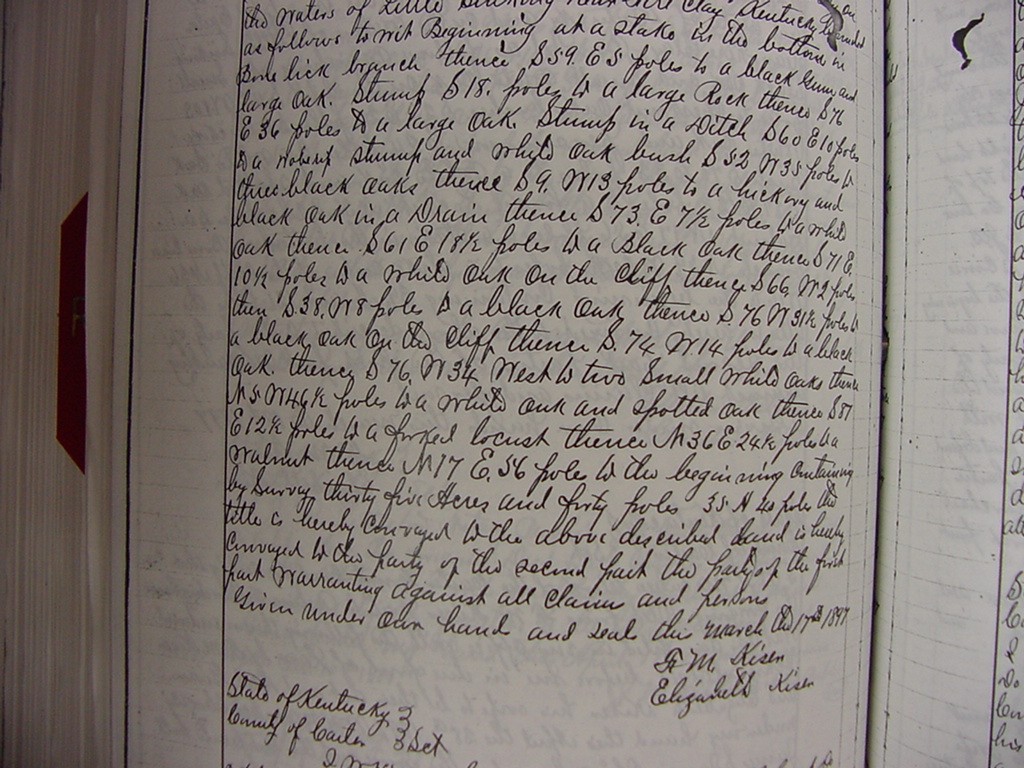 the waters of Little Sinking near Fire Clay Kentucky bounded on
as follows to wit Beginning at a stake in the bottom in
Bone lick branch thence S59. E5 poles to a black Gum and
large Oak. Stump S18. poles to a large Rock thence S76
E 36 poles to a large Oak Stump in a Ditch S60 E10 poles
to a stump and white oak bush S52 W35 poles to
three black oaks thence S9. W13 poles to a hickory and
black oak in a Drain thence S73. E 7½ poles to a white
oak thence S61 E 18½ poles to a Black oak thence S71 E.
10½ poles to a white oak on the Cliff thence S66. W2 poles
then S38. W8 poles to a black oak thence S. 76 W31½ poles to
a black oak on the Cliff thence S. 74 W14 poles to a black
oak. thence S76. W34 West to two Small white oaks thence
N5 W46½ poles to a white oak and spotted oak thence S87
E12½ poles to a forked locust thence N36 E24½ poles to a
walnut thence N17 E. 56 poles to the beginning Containing
by Survey thirty five Acres and forty poles 35 A 40 poles the
title is hereby Conveyed to the above described Land is hereby
Conveyed to the party of the second part the party of the first
part warranting against all claims and persons
Given under our hand and seals this march the 17th 1897
F. M. Kiser
Elizabeth Kiser
State of Kentucky
County of Carter Sct